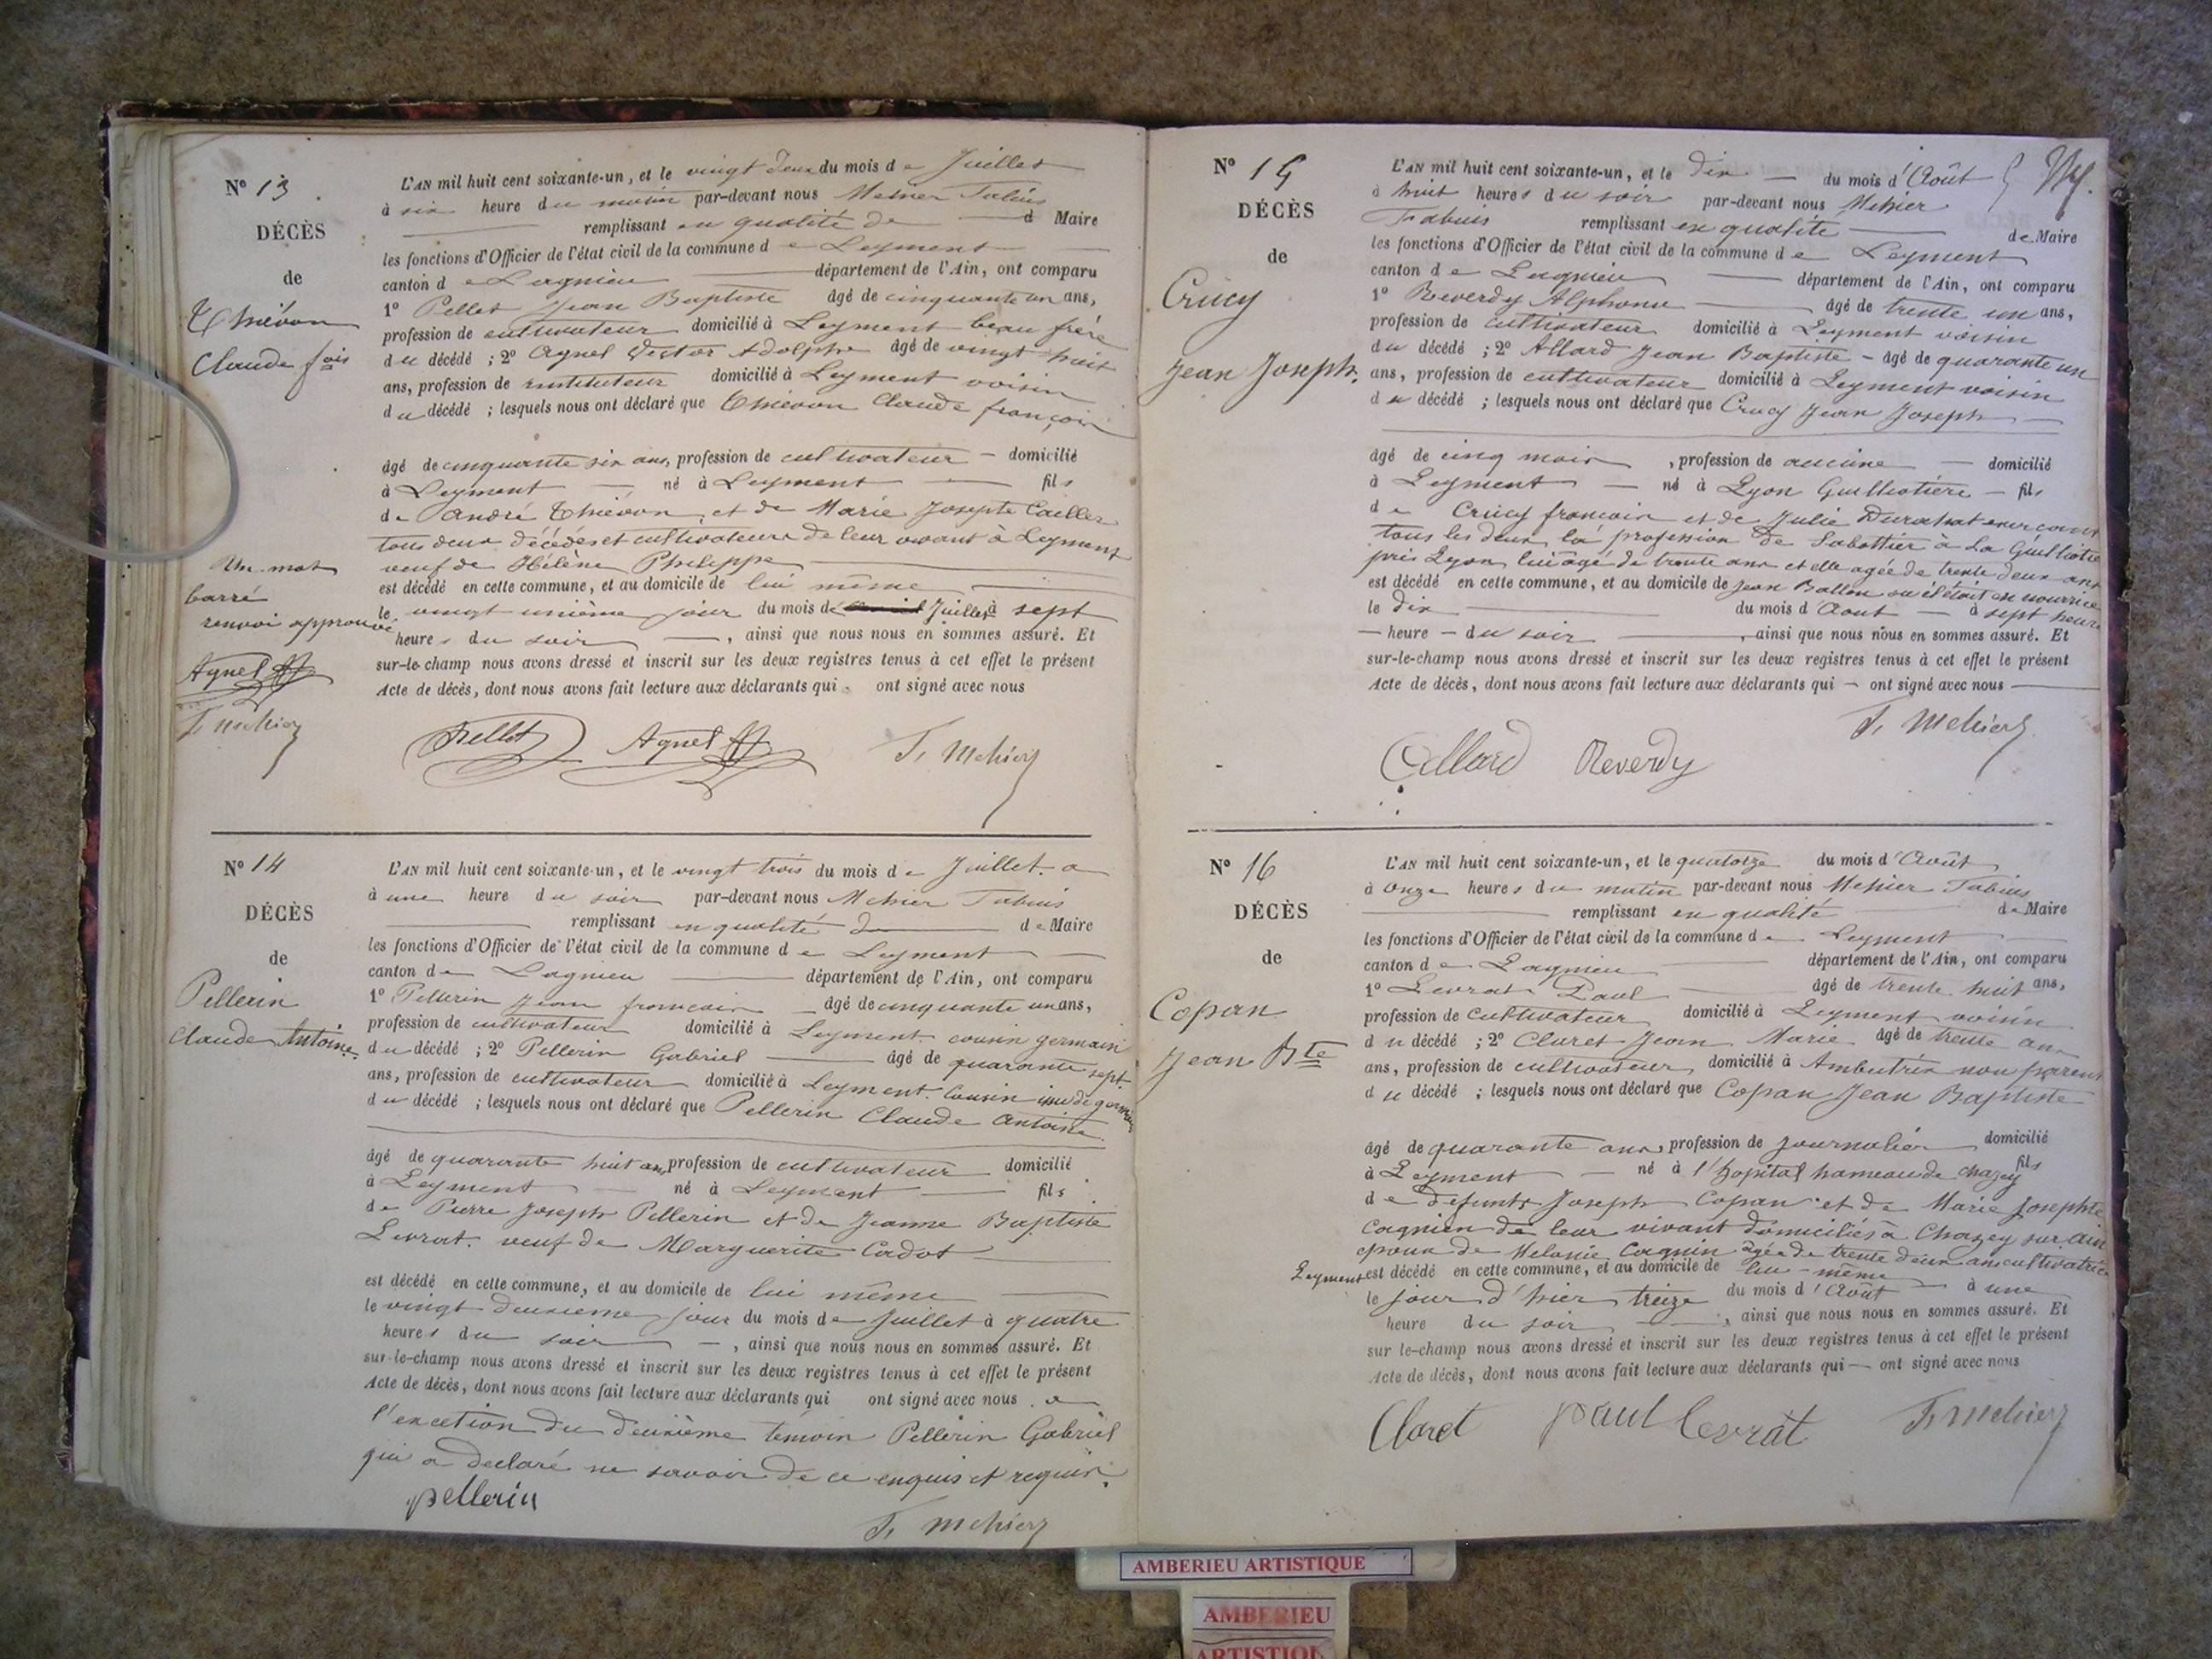 N° 13
DÉCÈS
de
Thiévon
Claude fois
L'AN mil huit cent soixante-un, et le vingt deux du mois de Juillet
à six heure du matin par-devant nous Mehier Fabius
remplissant en qualité de d Maire
les fonctions d'Officier de l'état civil de la commune de Leyment
canton de Lagnieu département de l'Ain, ont comparu
1° Pellet Jean Baptiste âgé de cinquante un ans,
profession de cultivateur domicilié à Leyment beau frère
du décédé ; 2° Agnel Victor Adolphe âgé de vingt huit
ans, profession de instituteur domicilié à Leyment voisin
du décédé ; lesquels nous ont déclaré que Thiévon Claude françois
âgé de cinquante six ans, profession de cultivateur – domicilié
à Leyment né à Leyment fils
de André Thiévon, et de Marie Josepte Cailler
tous deux décédés et cultivateurs de leur vivant à Leyment
veuf de Hélène Philippe
est décédé en cette commune, et au domicile de lui même
le vingt unième jour du mois de Juillet à sept
heures du soir, ainsi que nous nous en sommes assuré. Et
sur-le-champ nous avons dressé et inscrit sur les deux registres tenus à cet effet le présent
Acte de décès, dont nous avons fait lecture aux déclarants qui ont signé avec nous
Un mot
barré
renvoi approuvé
Agnel
F. Mehier
Pellet Agnel F. Mehier
N° 14
DÉCÈS
de
Pellerin
Claude Antoine
L'AN mil huit cent soixante-un, et le vingt trois du mois de Juillet. a
à une heure du soir par-devant nous Mehier Fabius
remplissant en qualité de de Maire
les fonctions d'Officier de l'état civil de la commune de Leyment
canton de Lagnieu département de l'Ain, ont comparu
1° Pellerin Jean francois âgé de cinquante un ans,
profession de cultivateur domicilié à Leyment cousin germain
du décédé ; 2° Pellerin Gabriel âgé de quarante sept
ans, profession de cultivateur domicilié à Leyment. Cousin issu de germain
du décédé ; lesquels nous ont déclaré que Pellerin Claude Antoine
âgé de quarante huit ans, profession de cultivateur domicilié
à Leyment né à Leyment fils
de Pierre Joseph Pellerin et de Jeanne Baptiste
Levrat. veuf de Marguerite Cadot
est décédé en cette commune, et au domicile de lui même
le vingt deuxième jour du mois de Juillet à quatre
heures du soir –, ainsi que nous nous en sommes assuré. Et
sur-le-champ nous avons dressé et inscrit sur les deux registres tenus à cet effet le présent
Acte de décès, dont nous avons fait lecture aux déclarants qui ont signé avec nous. a
l'excetion du deuxième témoin Pellerin Gabriel
qui a declaré ne savoir de ce enquis et requis.
pellerin
F. Mehier
N° 15
DÉCÈS
de
Crucy
Jean Joseph.
L'AN mil huit cent soixante-un, et le dix du mois d'Août
à huit heures du soir par-devant nous Mehier
Fabius remplissant en qualité de Maire
les fonctions d'Officier de l'état civil de la commune de Leyment
canton de Lagnieu département de l'Ain, ont comparu
1° Reverdy Alphonse âgé de trente un ans,
profession de cultivateur domicilié à Leyment voisin
du décédé ; 2° Allard Jean Baptiste – âgé de quarante un
ans, profession de cultivateur domicilié à Leyment voisin
du décédé ; lesquels nous ont déclaré que Crucy Jean Joseph
âgé de cinq mois, profession de aucune – domicilié
à Leyment – né à Lyon Guillotière – fils
de Crucy francois et de Julie exercant
tous les deux la profession de Sabottier à La
près Lyon lui agé de trente ans et elle agée de trente deux ans
est décédé en cette commune, et au domicile de Jean Ballon ou il était en nourrice
le dix du mois d'Aout – à sept heure
– heure – du soir, ainsi que nous nous en sommes assuré. Et
sur-le-champ nous avons dressé et inscrit sur les deux registres tenus à cet effet le présent
Acte de décès, dont nous avons fait lecture aux déclarants qui – ont signé avec nous
F. Mehier
Allard Reverdy
N° 16
DÉCÈS
de
Copan
Jean Bte
L'AN mil huit cent soixante-un, et le quatorze du mois d'Août
à onze heures du matin par-devant nous Mehier Fabius
remplissant en qualité de Maire
les fonctions d'Officier de l'état civil de la commune de Leyment
canton de Lagnieu département de l'Ain, ont comparu
1° Levrat Paul âgé de trente huit ans,
profession de cultivateur domicilié à Leyment voisin
du décédé ; 2° Claret Jean Marie âgé de trente ans
ans, profession de cultivateur domicilié à Ambutrix non parent
du décédé ; lesquels nous ont déclaré que Copan Jean Baptiste
âgé de quarante ans, profession de journalier domicilié
à Leyment – né à l'hopital hameau de chazey fils
de defunts Joseph Copan et de Marie Josephte
Cagnien de leur vivant domiciliés à Chazey sur ain
epoux de Melanie Cagnin agée de trente deux ans cultivatrice
Leyment est décédé en cette commune, et au domicile de lui-même
le jour d'hier treize du mois d'Août à une
heure du soir, ainsi que nous nous en sommes assuré. Et
sur le-champ nous avons dressé et inscrit sur les deux registres tenus à cet effet le présent
Acte de décès, dont nous avons fait lecture aux déclarants qui – ont signé avec nous
Claret paul levrat F. Mehier
AMBERIEU ARTISTIQUE
AMBERIEU
ARTISTIQU